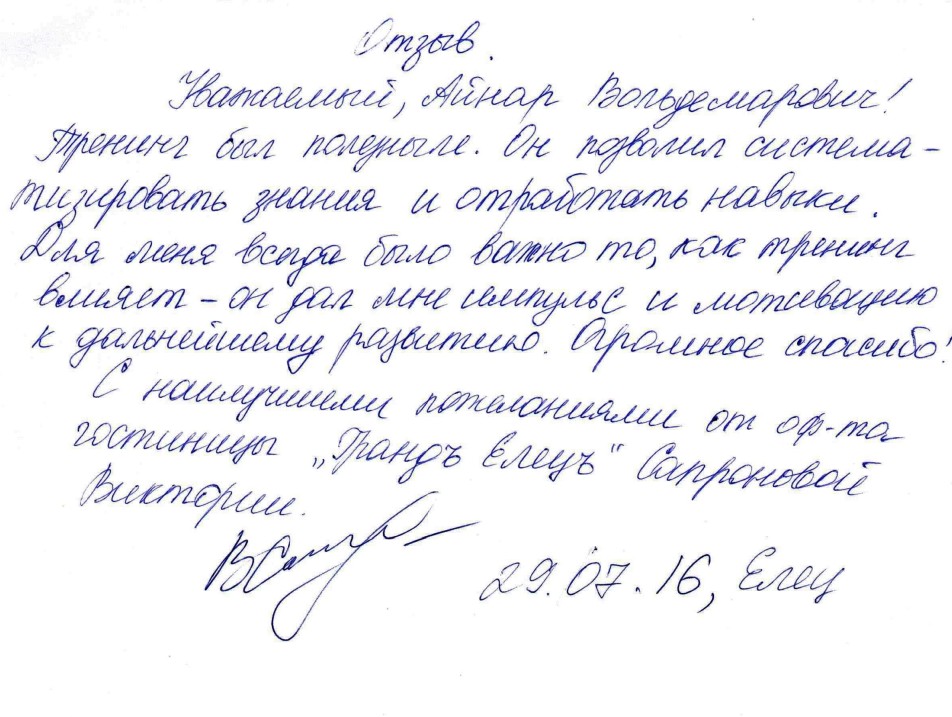 Отзыв.
Уважаемый, Айнар Вольдемарович!
Тренинг был полезным. Он позволил система-
тизировать знания и отработать навыки.
Для меня всегда было важно то, как тренинг
влияет – он дал мне импульс и мотивацию
к дальнейшему развитию. Огромное спасибо!
С наилучшими пожеланиями от оф-та
гостиницы „Грандъ Елецъ" Сапроновой
Виктории.
29.07.16, Елец